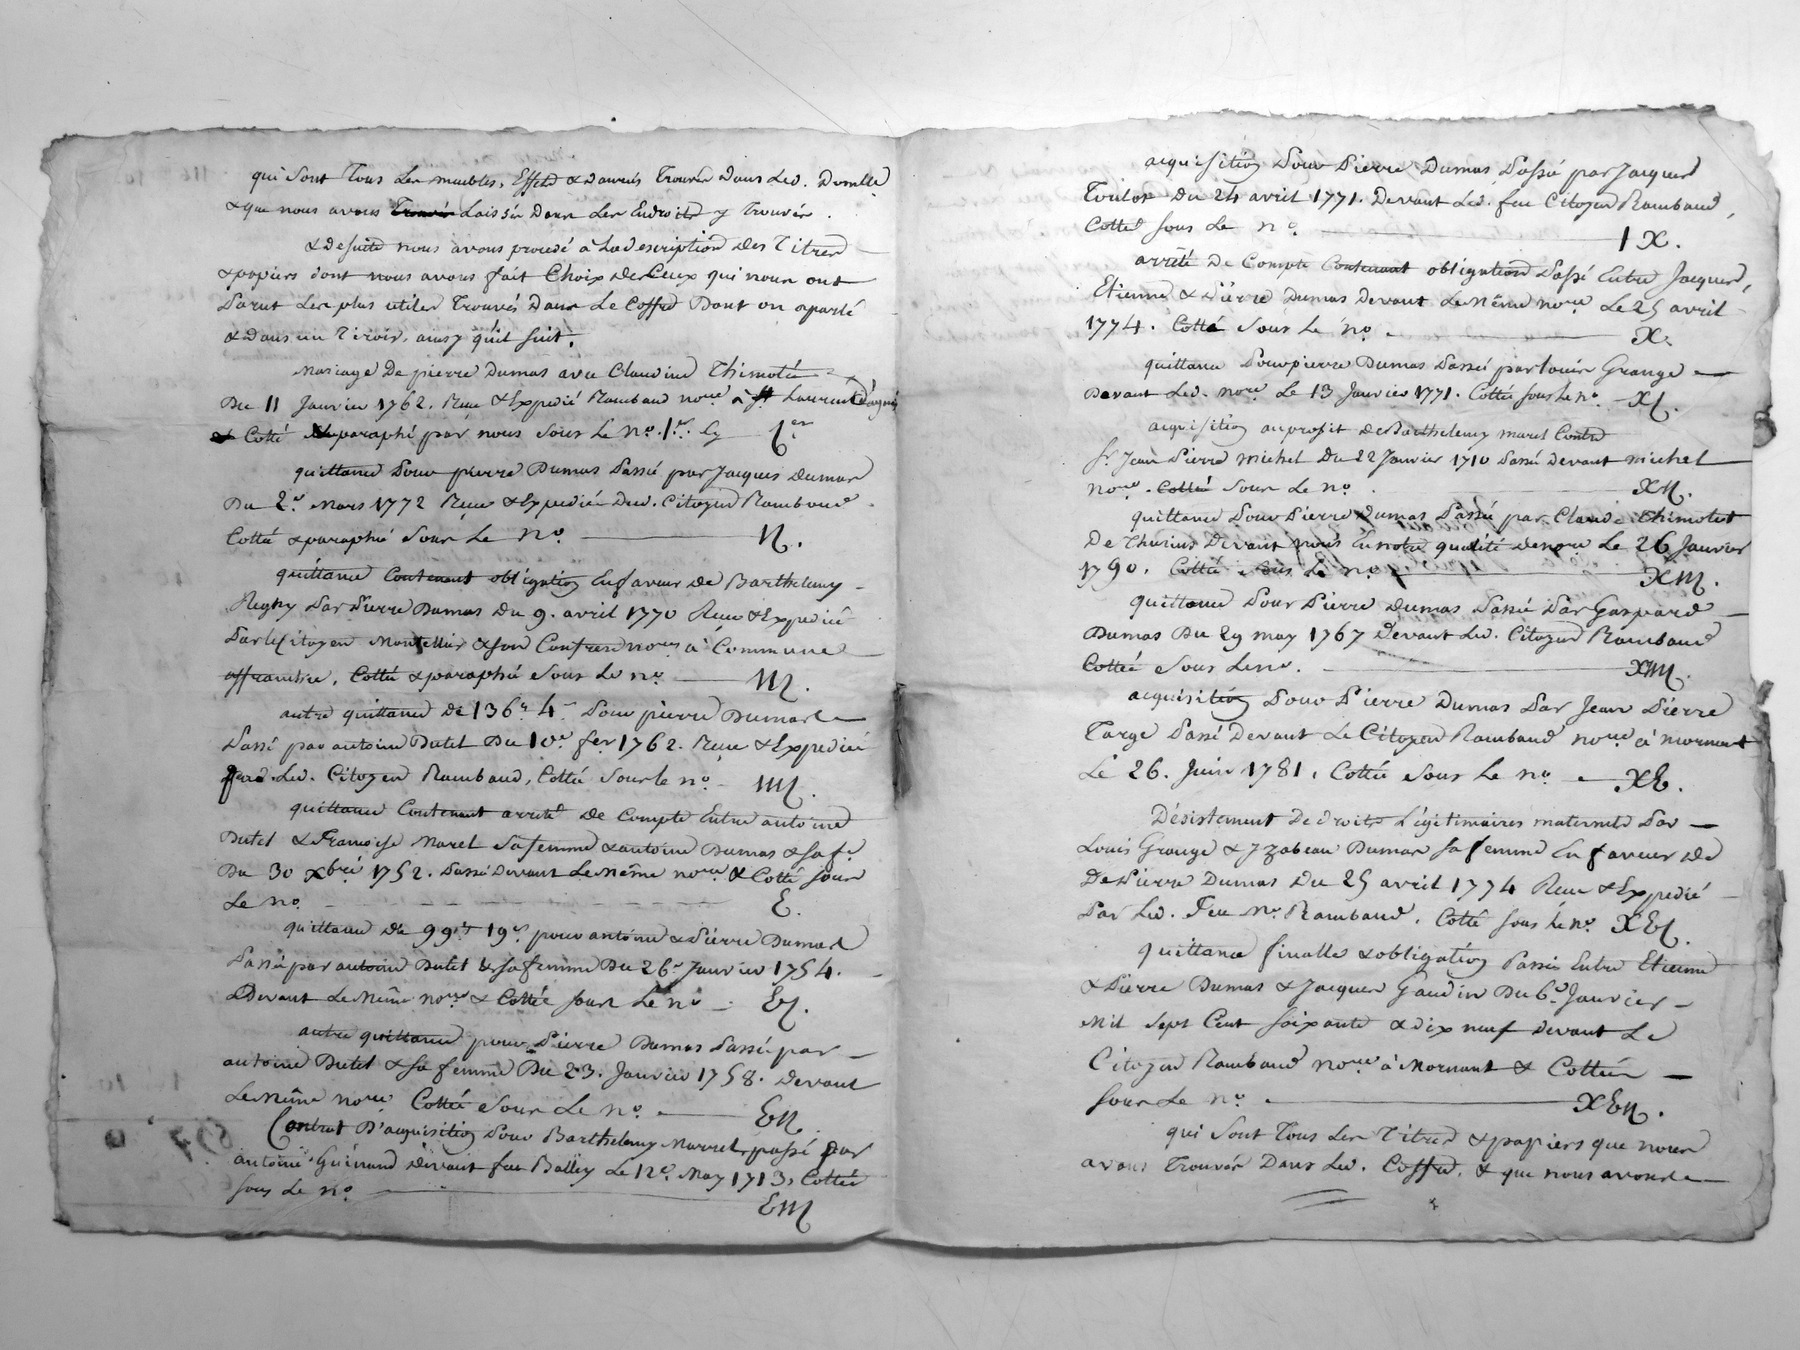 qui sont Tous Les meubles, Effets & danrés Trouvés dans Led. Domille
& que nous avons Trouvés Laissés dans Les Endroits y Trouvés.
& de suite nous avons procedé à La description des Titres
& papiers dont nous avons fait Choix de Ceux qui nous ont
Parut Les plus utiles Trouvés Dans Le Coffre Dont on a parlé
& dans un Tiroir, ainsy qu'il suit.
Mariage De pierre Dumas avec Claudine Thimotée
Du 11 Janvier 1762. Reçu & Expedié Rambaud no.re à St Laurent D'agny
& Cotté & paraphé par nous sous Le N.o 1.er Cy 1.er
quittance Pour pierre Dumas Passé par Jacques Dumas
Du 2.e Mars 1772 Reçu & Expedié Dud. Citoyen Rambaud
Cotté & paraphé sous Le N.o II.
quittance Contenant obligation En faveur de Barthelemy
Regny Par Pierre Dumas Du 9. avril 1770 Reçu & Expedié
Par Le Citoyen Montellier & son Confrere no.res à Commune
affranchie, Cotté & paraphé sous Le n.o III.
autre quittance de 136# 4s Pour pierre Dumas
Passé par antoine Dutel Du 10.e fer 1762. Reçu & Expedié
Par Led. Citoyen Rambaud, Cotté sous le n.o IIII.
quittance Contenant arreté de Compte Entre antoine
Dutel & Françoise Marel sa femme & antoine Dumas & sa fe
Du 30 xbre 1752. Passé Devant Le Même no.re & Cotté sous
Le no. V.
quittance de 99# 19s pour antoine & Pierre Dumas
Passé par antoine Dutel & sa femme Du 26.e Janvier 1754.
Devant Le Même no.re & Cottée sous Le no VI.
autre quittance pour Pierre Dumas Passé par
antoine Dutel & sa femme Du 23. Janvier 1758. devant
Le Même no.re Cottée sous Le N.o VII.
Contrat D'acquisition Pour Barthelemy Marrel, passé par
antoine Guinand devant feu Balley Le 12.e May 1713, Cottée
sous Le N.o VIII
acquisition Pour Pierre Dumas Passé par Jacques
Du 24 avril 1771. Devant Led. feu Citoyen Rambaud,
Cotté sous Le n.o IX.
arrété De Compte Contenant obligation Passé Entre Jacques,
Etienne & Pierre Dumas Devant Le Même no.re Le 25 avril
1774. Cotté sous Le no. X.
quittance Pour pierre Dumas Passé par Louis Grange
Devant Led. no.re Le 13 Janvier 1771. Cotté sous Le N.o XI.
acquisition au profit de Barthelemy Marel Contre
Sr. Jean Pierre Michel Du 22 Janvier 1710 Passé Devant Michel
no.re Cotté sous Le N.o XII.
quittance Pour Pierre Dumas Passé par Claude Thimotée
De Thurins Devant nous En notre qualité de no.re Le 26 Janvier
1790. Cottée sous Le n.o XIII.
quittance Pour Pierre Dumas Passé Par Gaspard
Dumas Du 29 may 1767 Devant Led. Citoyen Rambaud
Cottée sous Le no. XIIII.
acquisition Pour Pierre Dumas Par Jean Pierre
Targe Passé Devant Le Citoyen Rambaud no.re à Mornant
Le 26. Juin 1781, Cottée sous Le N.o XV.
Désistement De droits Légitimaires maternels Par
Louis Grange & Izabeau Dumas sa femme En faveur de
De Pierre Dumas Du 25 avril 1774 Reçu & Expedié
Par Led. Feu Me. Rambaud. Cotté sous Le N.o XVI.
quittance finalle & obligation Passés Entre Etienne
& Pierre Dumas & Jacques Gaudin Du 6.e Janvier
Mil Sept Cent soixante & dix neuf devant Le
Citoyen Rambaud no.re à Mornant & Cottée
sous Le N.o XVII.
qui sont Tous Les Titres & papiers que nous
avons Trouvés Dans Led. Coffre, & que nous avons